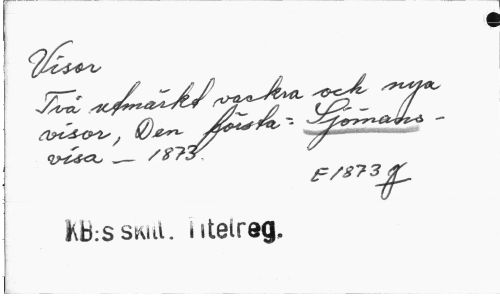 Visor
Två utmärkt vackra och nya
visor, Den första: Sjömans-
visa — 1873.
E 1873 g
KB:s skill. Titelreg.